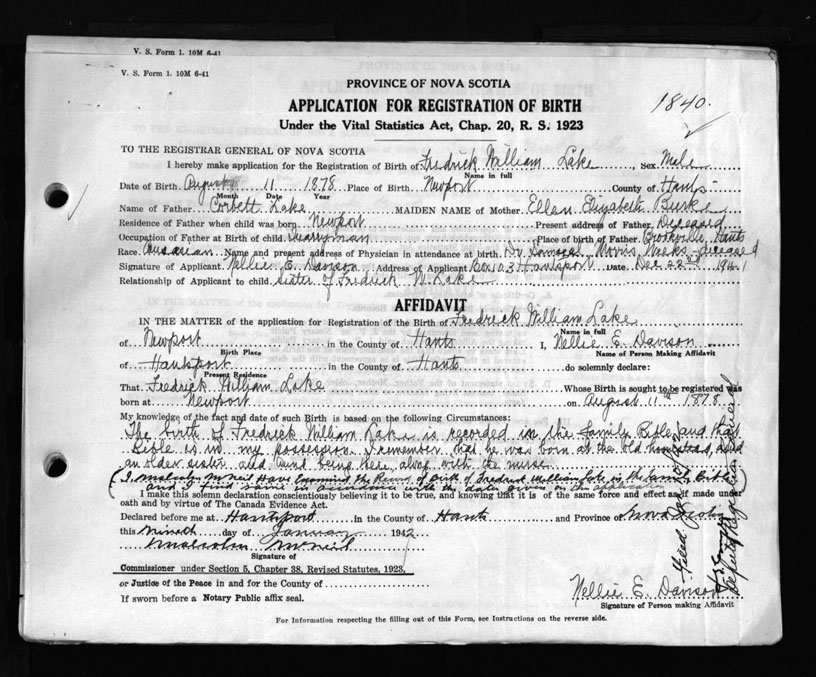 V. S. Form 1. 10M 6-41
V. S. Form 1. 10M 6-41
PROVINCE OF NOVA SCOTIA
APPLICATION FOR REGISTRATION OF BIRTH
1840.
Under the Vital Statistics Act, Chap. 20, R. S. 1923
TO THE REGISTRAR GENERAL OF NOVA SCOTIA
I hereby make application for the Registration of Birth of Fredrick William Lake Sex Male
Name in full
Date of Birth August 11 1878 Place of Birth Newport County of Hants
Month Date Year
Name of Father Corbett Lake MAIDEN NAME of Mother Ellen Elizabeth Burke
Residence of Father when child was born Newport Present address of Father Deceased
Occupation of Father at Birth of child Quarryman Place of birth of Father Brookville Hants
Race Name and present address of Physician in attendance at birth Dr Morris Weeks deceased
Signature of Applicant Nellie E. Davison Address of Applicant Box 103 Hantsport Date Dec 22nd 1941
Relationship of Applicant to child sister of Fredrick W. Lake
AFFIDAVIT
IN THE MATTER of the application for Registration of the Birth of Fredrick William Lake
Name in full
of Newport in the County of Hants I, Nellie E. Davison
Birth Place Name of Person Making Affidavit
of Hantsport in the County of Hants do solemnly declare:
Present Residence
That Fredrick William Lake Whose Birth is sought to be registered was
born at Newport on August 11th 1878
My knowledge of the fact and date of such Birth is based on the following Circumstances:
The birth of Fredrick William Lake is recorded in the family Bible and that
Bible is in my possession. I remember that he was born at the old homestead, and
an older sister and Aunt being there along with the nurse.
(I Malcolm McNeil Have Examined the Record of Birth of Fredrick William Lake in the family Bible
and I find same in accordance with date given in affidavit)
I make this solemn declaration conscientiously believing it to be true, and knowing that it is of the same force and effect as if made under
oath and by virtue of The Canada Evidence Act.
Declared before me at Hantsport in the County of Hants and Province of Nova Scotia
this Nineth day of January 1942
Malcolm McNeil
Signature of
Commissioner under Section 5, Chapter 38, Revised Statutes, 1923,
or Justice of the Peace in and for the County of
If sworn before a Notary Public affix seal.
Nellie E. Davison
Signature of Person making Affidavit
For Information respecting the filling out of this Form, see Instructions on the reverse side.
Filed
Deputy Registrar General